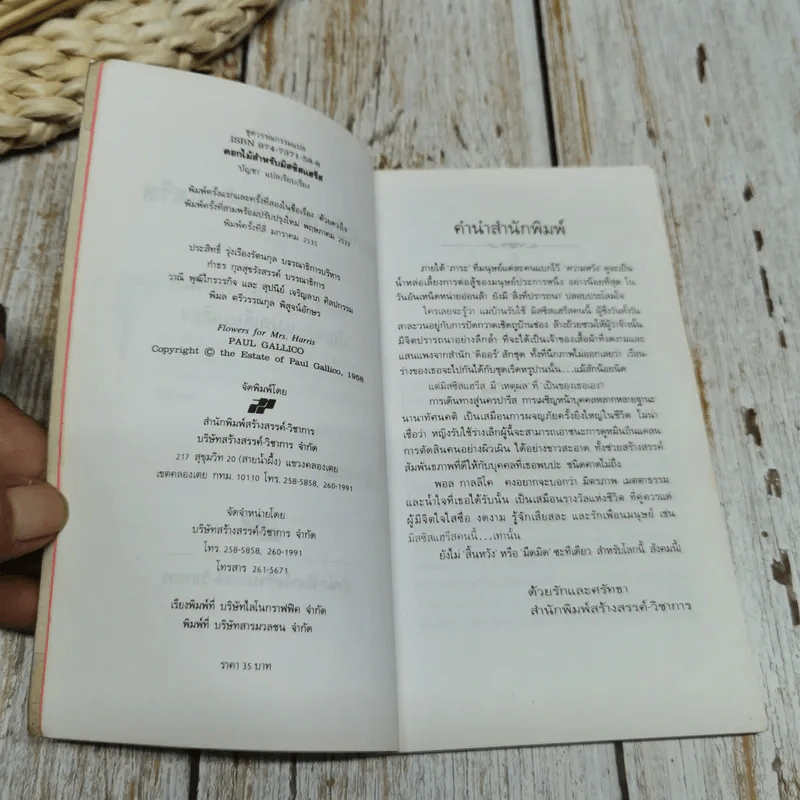 ชุดวรรณกรรมแปล
ISBN 974-7371-38-8
ดอกไม้สำหรับมิสซิสแฮรีส
'บัญชา' แปลเรียบเรียง
พิมพ์ครั้งแรกและครั้งที่สองในชื่อเรื่อง ด้วยดวงใจ
พิมพ์ครั้งที่สามพร้อมปรับปรุงใหม่ พฤษภาคม 2533
พิมพ์ครั้งที่สี่ มกราคม 2535
ประสิทธิ์ รุ่งเรืองรัตนกุล บรรณาธิการบริหาร
กำธร กุลสุขรังสรรค์ บรรณาธิการ
วาณี พูฒิไกรวรกิจ และ สุปนีย์ เจริญลาภ ศิลปกรรม
พิมล ตรีวรรณกุล พิสูจน์อักษร
Flowers for Mrs. Harris
PAUL GALLICO
Copyright © the Estate of Paul Gallico, 1958
จัดพิมพ์โดย
สำนักพิมพ์สร้างสรรค์-วิชาการ
บริษัทสร้างสรรค์-วิชาการ จำกัด
217 สุขุมวิท 20 (สายน้ำผึ้ง) แขวงคลองเตย
เขตคลองเตย กทม. 10110 โทร. 258-5858, 260-1991
จัดจำหน่ายโดย
บริษัทสร้างสรรค์-วิชาการ จำกัด
โทร. 258-5858, 260-1991
โทรสาร 261-5671
เรียงพิมพ์ที่ บริษัทไลโนกราฟฟิค จำกัด
พิมพ์ที่ บริษัทสารมวลชน จำกัด
ราคา 35 บาท
คำนำสำนักพิมพ์
ภายใต้ 'ภาระ' ที่มนุษย์แต่ละคนแบกไว้ 'ความหวัง' ดูจะเป็น
น้ำหล่อเลี้ยงการต่อสู้ของมนุษย์ประการหนึ่ง อย่างน้อยที่สุด ใน
วันอันเหน็ดเหนื่อยอ่อนล้า ยังมี 'สิ่งที่ปรารถนา' ปลอบประโลมใจ
ใครเลยจะรู้ว่า แม่บ้านรับใช้ มิสซิสแฮรีสคนนี้ ผู้ซึ่งวันทั้งวัน
สาละวนอยู่กับการปัดกวาดเช็ดถูบ้านช่อง ล้างถ้วยชามให้ผู้ว่าจ้างนั้น
มีจิตปรารถนาอย่างลึกล้ำ ที่จะได้เป็นเจ้าของเสื้อผ้าที่งดงามและ
แสนแพงจากสำนัก 'ดิออร์' สักชุด ทั้งที่นึกภาพไม่ออกเลยว่า เรือน-
ร่างของเธอจะไปกันได้กับชุดเริ่ดหรูปานนั้น...แม้สักน้อยนิด
แต่มิสซิสแฮรีส มี 'เหตุผล' ที่ เป็นของเธอเอง?
การเดินทางสู่นครปารีส การเผชิญหน้าบุคคลหลากหลายฐานะ
นานาทัศนคติ เป็นเสมือนการผจญภัยครั้งยิ่งใหญ่ในชีวิต ไม่น่า
เชื่อว่า หญิงรับใช้ร่างเล็กผู้นี้จะสามารถเอาชนะการดูหมิ่นถิ่นแคลน
การตัดสินคนอย่างผิวเผิน ได้อย่างขาวสะอาด ทั้งช่วยสร้างสรรค์
สัมพันธภาพที่ดีให้กับบุคคลที่เธอพบปะ ชนิดคาดไม่ถึง
พอล กาลลิโค คงอยากจะบอกว่า มิตรภาพ เมตตาธรรม
และน้ำใจที่เธอได้รับนั้น เป็นเสมือนรางวัลแห่งชีวิต ที่คู่ควรแด่
ผู้มีจิตใจใสซื่อ งดงาม รู้จักเสียสละ และรักเพื่อนมนุษย์ เช่น
มิสซิสแฮรีสคนนี้...เท่านั้น
ยังไม่ 'สิ้นหวัง' หรือ 'มืดมิด' ซะทีเดียว สำหรับโลกนี้ สังคมนี้
ด้วยรักและศรัทธา
สำนักพิมพ์สร้างสรรค์-วิชาการ